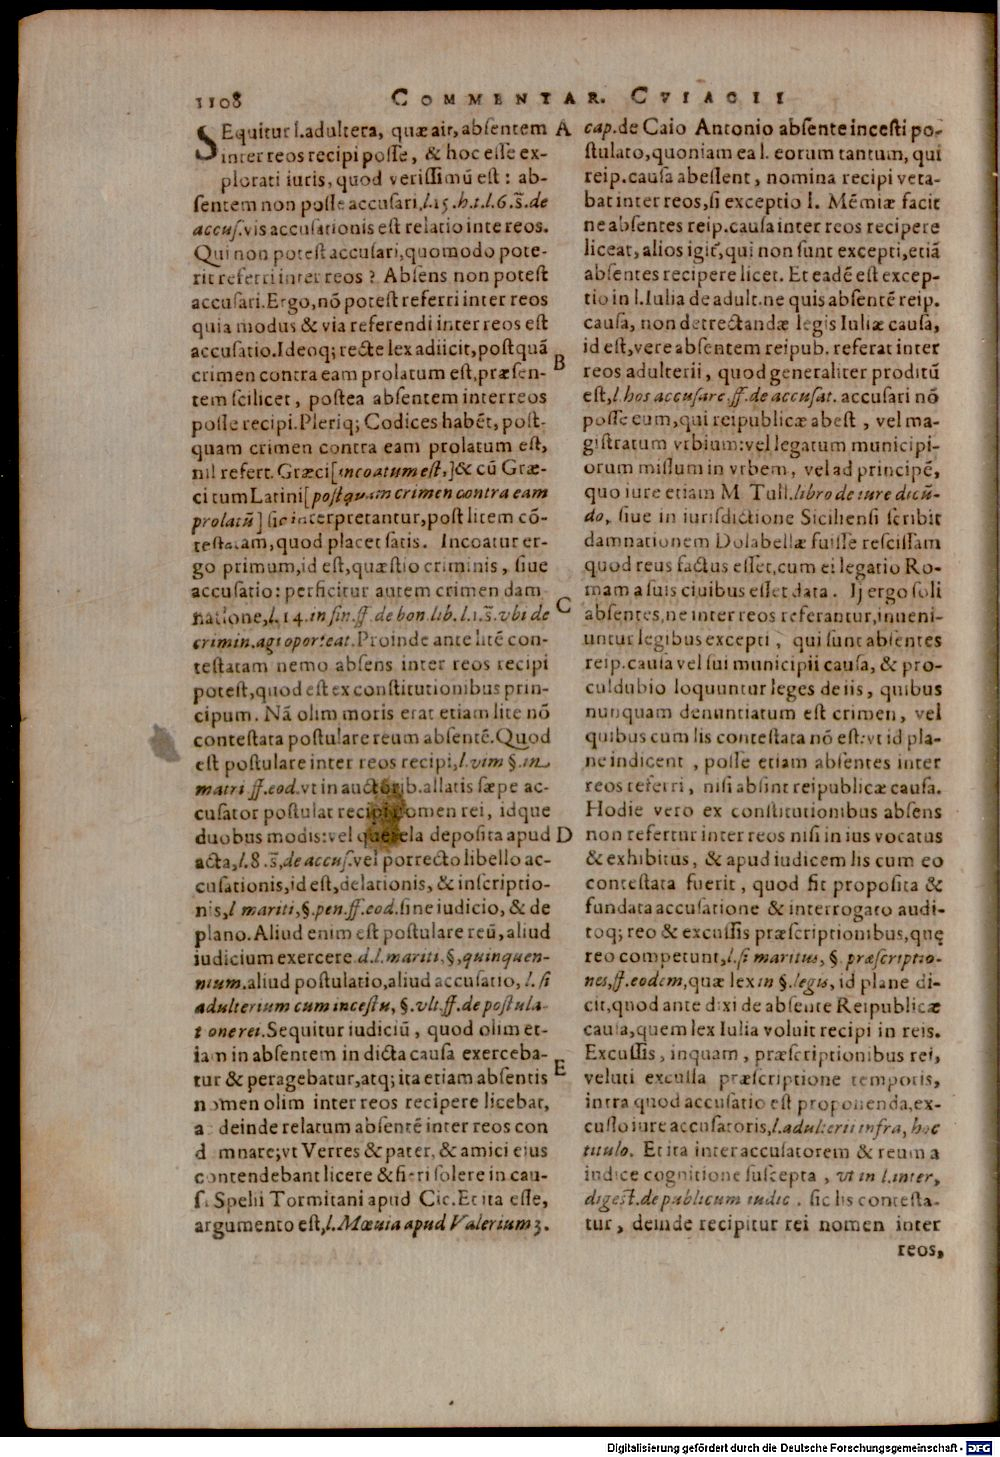 1108
COMMENTAR. CVIACII
SEquitur l.adultera, quæ ait, absentem
inter reos recipi posse, & hoc esse ex-
plorati iuris, quod verissimũ est: ab-
sentem non posse accusari, l.15.h.t.l.6.s̃.de
accus. vis accusationis est relatio inte reos.
Qui non potest accusari, quomodo pote-
rit referri inter reos? Absens non potest
accusari. Ergo, nõ potest referri inter reos
quia modus & via referendi inter reos est
accusatio. Ideoq; recte lex adiicit, postquã
crimen contra eam prolatum est, præsen-
tem scilicet, postea absentem inter reos
posse recipi. Pleriq; Codices habẽt, post-
quam crimen contra eam prolatum est,
nil refert. Græci [incoatum est,] & cũ Græ-
ci tum Latini [postquam crimen contra eam
prolatũ] sic interpretantur, post litem cõ-
testatam, quod placet satis. Incoatur er-
go primum, id est, quæstio criminis, siue
accusatio: perficitur autem crimen dam
natione, l.14.in fin.ff.de bon.lib.l.1.s̃.vbi de
crimin.agi oporteat. Proinde ante litẽ con-
testatam nemo absens inter reos recipi
potest, quod est ex constitutionibus prin-
cipum. Nã olim moris erat etiam lite nõ
contestata postulare reum absentẽ. Quod
est postulare inter reos recipi, l.vim §.in
matri ff.eod. vt in auctorib. allatis sæpe ac-
cusator postulat recipi nomen rei, idque
duobus modis: vel querela deposita apud
acta, l.8.s̃, de accus. vel porrecto libello ac-
cusationis, id est, delationis, & inscriptio-
nis, l mariti, §.pen.ff.eod. sine iudicio, & de
plano. Aliud enim est postulare reũ, aliud
iudicium exercere d.l.mariti.§, quinquen-
nium. aliud postulatio, aliud accusatio, l. si
adulterium cum incestu, §.vlt.ff.de postula-
t oneret. Sequitur iudiciũ, quod olim et-
iam in absentem in dicta causa exerceba-
tur & peragebatur, atq; ita etiam absentis
nomen olim inter reos recipere licebat,
a deinde relatum absentẽ inter reos con
d mnare; vt Verres & pater, & amici eius
contendebant licere & fieri solere in cau-
s. Spelii Tormitani apud Cic. Et ita esse,
argumento est, l. Mæuia apud Valerium 3.
A
B
C
D
E
cap. de Caio Antonio absente incesti po-
stulato, quoniam ea l. eorum tantum, qui
reip. causa abessent, nomina recipi veta-
bat inter reos, si exceptio l. Mẽmiæ facit
ne absentes reip. causa inter reos recipere
liceat, alios igit̃, qui non sunt excepti, etiã
absentes recipere licet. Et eadẽ est excep-
tio in l. Iulia de adult. ne quis absentẽ reip.
causa, non detrectandæ legis Iuliæ causa,
id est, vere absentem reipub. referat inter
reos adulterii, quod generaliter proditũ
est, l.hos accusare.ff.de accusat. accusari nõ
posse eum, qui reipublicæ abest, vel ma-
gistratum vrbium: vel legatum municipi-
orum missum in vrbem, vel ad principẽ,
quo iure etiam M Tull. libro de iure dicũ-
do, siue in iurisdictione Siciliensi scribit
damnationem Dolabellæ fuisse rescissam
quod reus factus esset, cum ei legatio Ro-
mam a suis ciuibus esset data. Ij ergo soli
absentes, ne inter reos referantur, inueni-
untur legibus excepti, qui sunt absentes
reip. causa vel sui municipii causa, & pro-
culdubio loquuntur leges de iis, quibus
nunquam denuntiatum est crimen, vel
quibus cum lis contestata nõ est: vt id pla-
ne indicent, posse etiam absentes inter
reos referri, nisi absint reipublicæ causa.
Hodie vero ex constitutionibus absens
non refertur inter reos nisi in ius vocatus
& exhibitus, & apud iudicem lis cum eo
contestata fuerit, quod fit proposita &
fundata accusatione & interrogato audi-
toq; reo & excussis præscriptionibus, quę
reo competunt, l.si maritus, §. præscriptio-
nes, ff.eodem, quæ lex in §.legis, id plane di-
cit, quod ante dixi de absente Reipublicæ
causa, quem lex Iulia voluit recipi in reis.
Excussis, inquam, præscriptionibus rei,
veluti exculsa præscriptione temporis,
intra quod accusatio est proponenda, ex-
cusso iure accusatoris, l.adulterii infra, hoc
titulo. Et ita inter accusatorem & reum a
iudice cognitione suscepta, vt in l.inter,
digest.de publicum iudic. sic lis contesta-
tur, deinde recipitur rei nomen inter
reos,
Digitalisierung gefördert durch die Deutsche Forschungsgemeinschaft - DFG